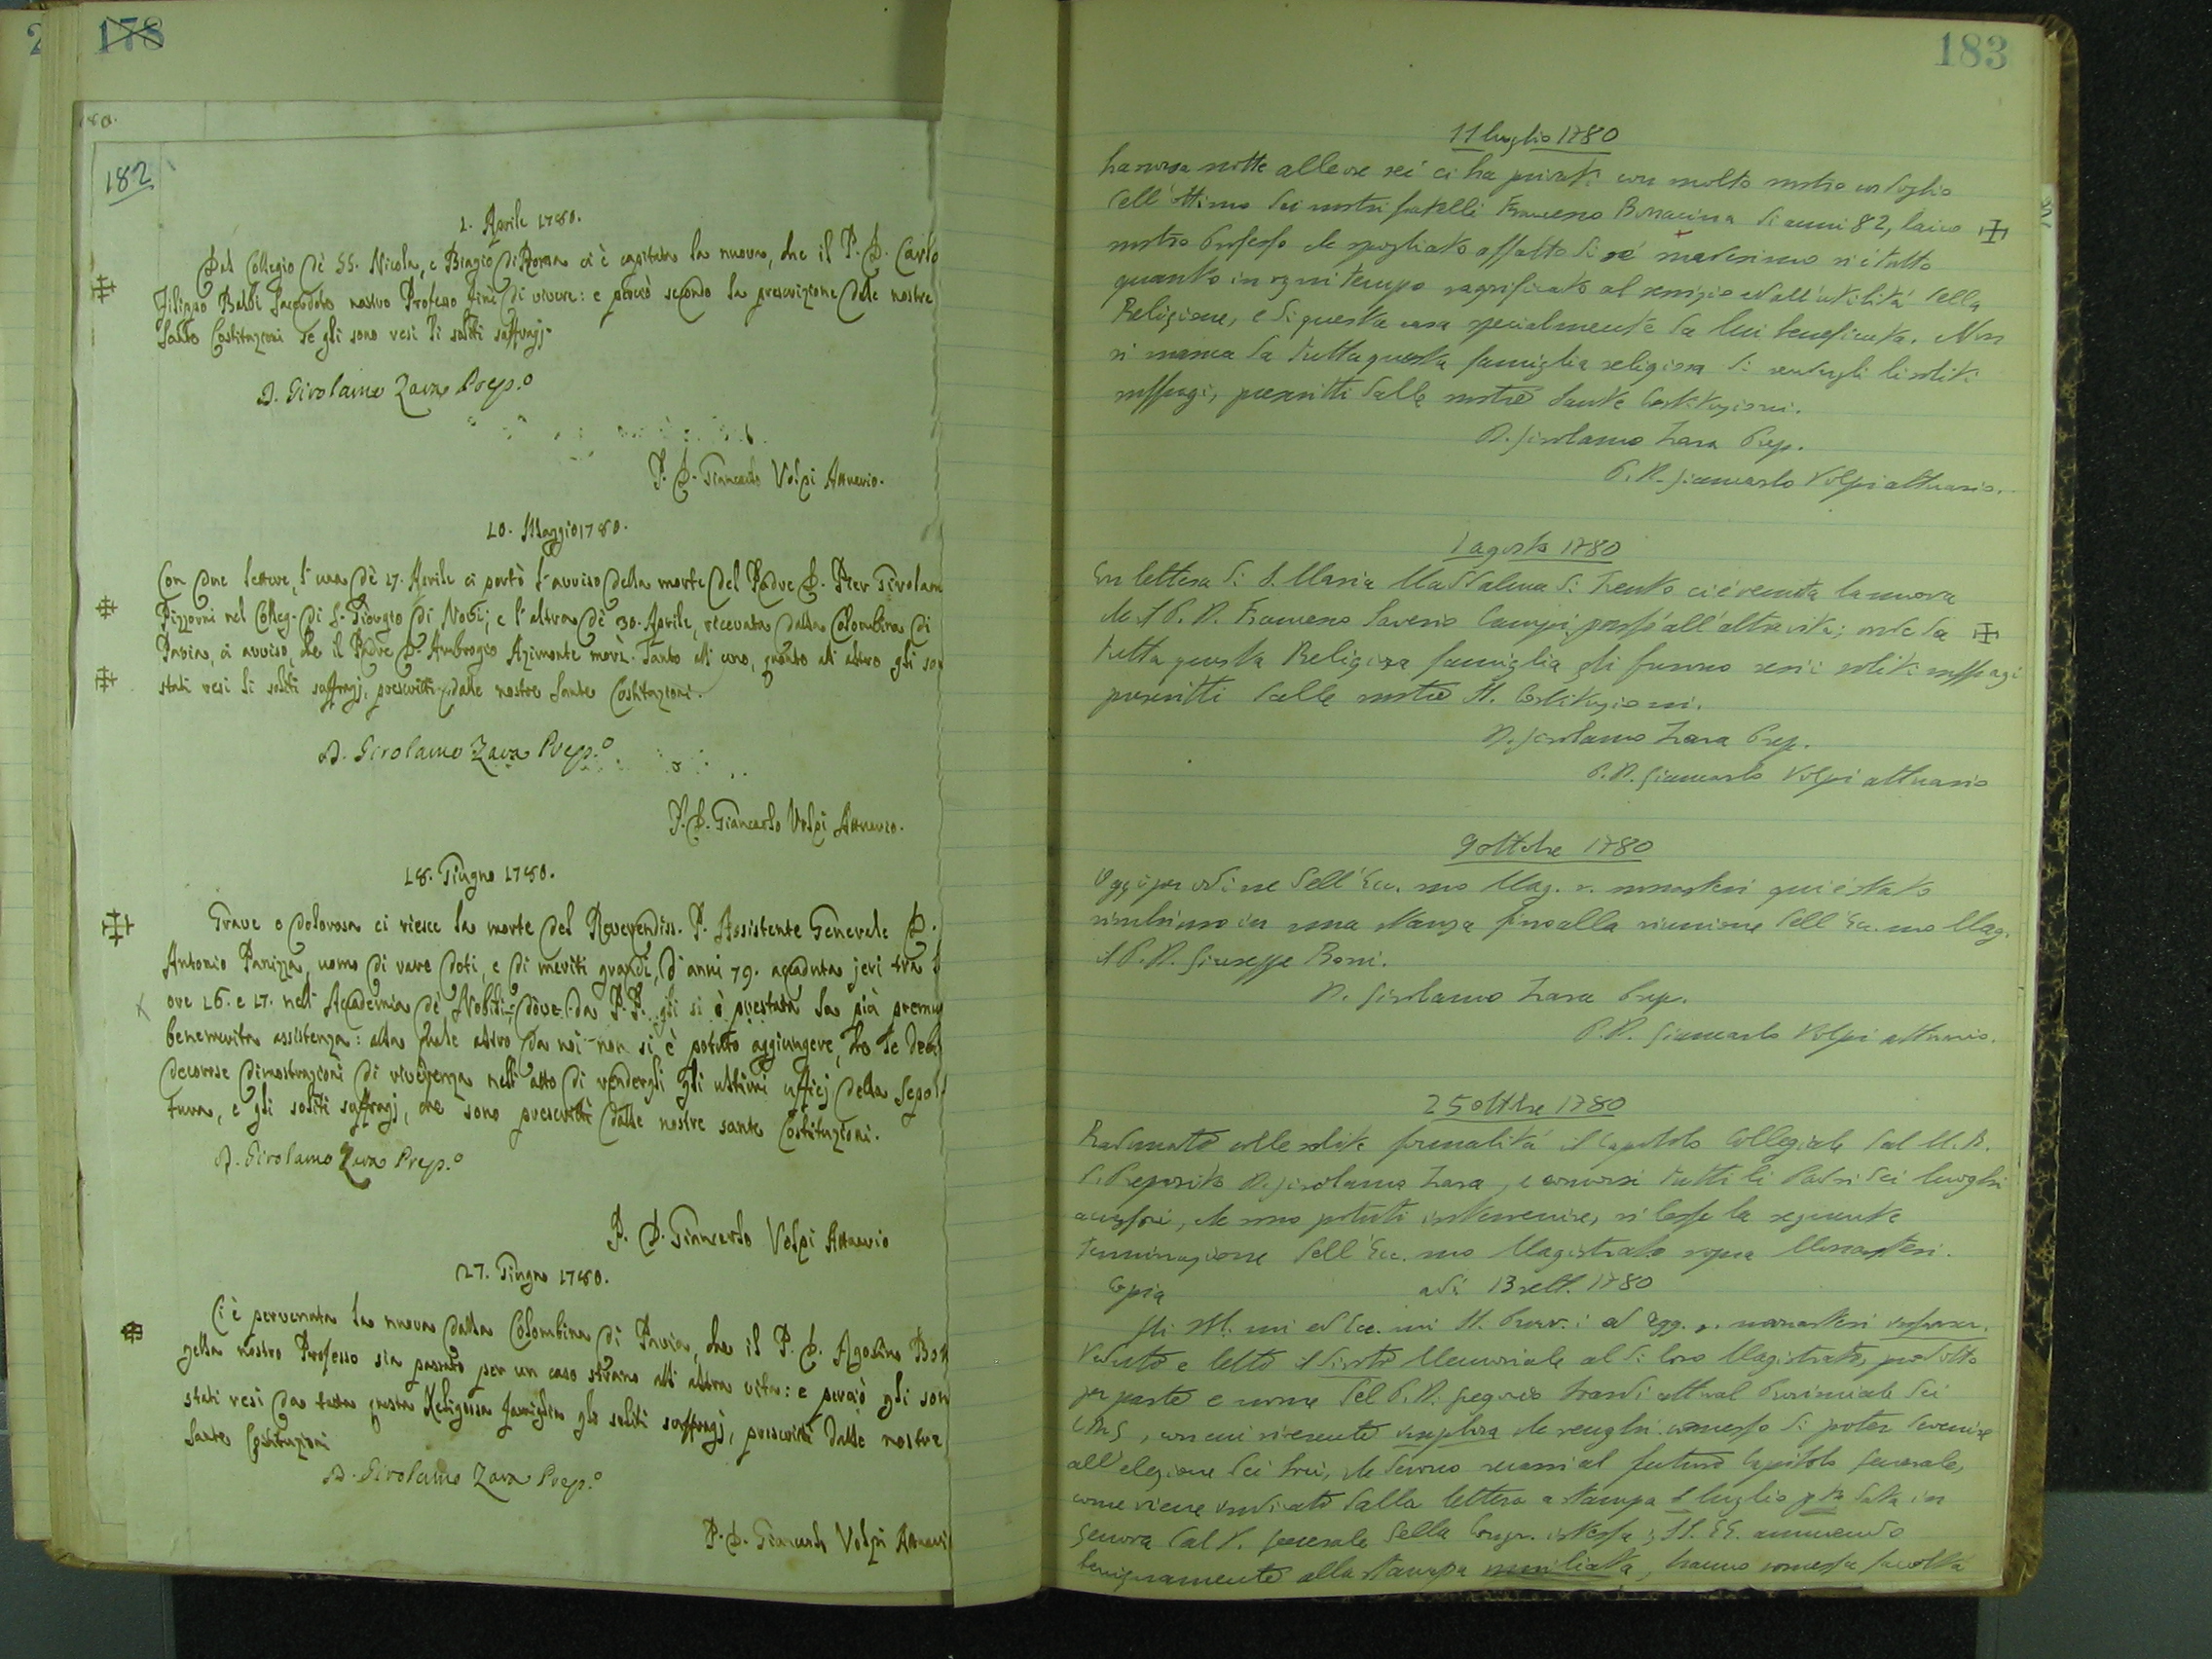 178
182
1. Aprile 1780.
Dal Collegio de' SS. Nicola, e Biagio di Roma ci è capitata la nuova, che il P. D. Carlo
Filippo Balbi Sacerdote nostro Professo finì di vivere: e perciò secondo la prescrizione delle nostre
Sante Costituzioni se gli sono resi li soliti suffragj.
D. Girolamo Zara Prep.º
P. D. Giancarlo Volpi Attuario.
10. Maggio 1780.
Con due lettere, l'una de' 27. Aprile ci portò l'avviso della morte del Padre D. Pier Girolam
Pizzorni nel Colleg. di S. Giorgio di Novi; e l'altra de' 30. Aprile, ricevuta dalla Colombina di
Pavia, ci avvisò, che il Padre D. Ambrogio Azimonte morì. Tanto all'uno, quanto all'altro gli son
stati resi li soliti suffragj, prescritti dalle nostre Sante Costituzioni.
D. Girolamo Zara Prep.º
P. D. Giancarlo Volpi Attuario.
18. Giugno 1780.
Grave e dolorosa ci riesce la morte del Reverendiss. P. Assistente Generale D.
Antonio Panizza, uomo di rare doti, e di meriti grandi, d'anni 79. accaduta jeri tra l
ore 16. e 17. nell'Accademia de' Nobili; dove da P. P. gli si è prestata la più premu
benemerita assistenza: alla quale altro da noi non si è potuto aggiungere, che le debi
decorose dimostrazioni di riverenza nell'atto di rendergli gli ultimi ufficj della Sepol
tura, e gli soliti suffragj, che sono prescritti dalle nostre sante Costituzioni.
D. Girolamo Zara Prep.º
P. D. Giancarlo Volpi Attuario
27. Giugno 1780.
Ci è pervenuta la nuova dalla Colombina di Pavia, che il P. D. Agostino Bor
gella nostro Professo sia passato per un caso strano all'altra vita: e perciò gli son
stati resi da tutta questa Religiosa famiglia gli soliti suffragj, prescritti dalle nostre
Sante Costituzioni
D. Girolamo Zara Prep.º
P. D. Giancarlo Volpi Attuari
183
11 luglio 1780
La scorsa notte alle ore sei ci ha privati con molto nostro cordoglio
dell'ottimo dei nostri fratelli Francesco Bonacina di anni 82, laico
nostro Professo che spogliato affatto di sé medesimo si è tutto
quanto in ogni tempo sagrificato al servizio ed all'utilità della
Religione, e di questa casa specialmente da lui beneficata. Non
si manca da tutta questa famiglia religiosa di rendergli li soliti
suffragi, prescritti dalle nostre Sante Costituzioni.
D. Girolamo Zara Prep.
P. D. Giancarlo Volpi attuario.
1 agosto 1780
Con lettera di S. Maria Maddalena di Trento ci è venuta la nuova
che il P. D. Francesco Saverio Campi passò all'altra vita; onde da
tutta questa Religiosa famiglia gli furono resi i soliti suffragi
prescritti dalle nostre SS. Costituzioni.
D. Girolamo Zara Prep.
P. D. Giancarlo Volpi attuario
9 ottobre 1780
Oggi per ordine dell'Ecc.mo Mag. s. monasteri qui è stato
rinchiuso in una stanza fino alla riunione dell'Ecc.mo Mag.
il P. D. Giuseppe Boni.
D. Girolamo Zara Prep.
P. D. Giancarlo Volpi attuario.
25 ottobre 1780
Radunato colle solite formalità il Capitolo Collegiale dal M. R.
P. Preposito D. Girolamo Zara, e concorsi tutti li Padri dei luoghi
annessi, che sono potuti intervenire, si lesse la seguente
Terminazione dell'Ecc.mo Magistrato sopra Monasteri.
Copia adì 13 sett. 1780
Gli Ill.mi ed Ecc.mi SS. Provv.i ed Agg. s. monasteri
Veduto e letto il Memoriale al di loro Magistrato, prodotto
per parte e nome del P. D. attual Provinciale dei
CRS, con cui riverente implora che venghi concesso di poter devenire
all'elezione dei Soci, che devono recarsi al futuro Capitolo Generale,
come viene indicato dalla lettera a stampa 1 luglio data in
Genova dal P. Generale della Congr. istessa; SS. EE. annuendo
benignamente alla stampa, hanno concessa facoltà